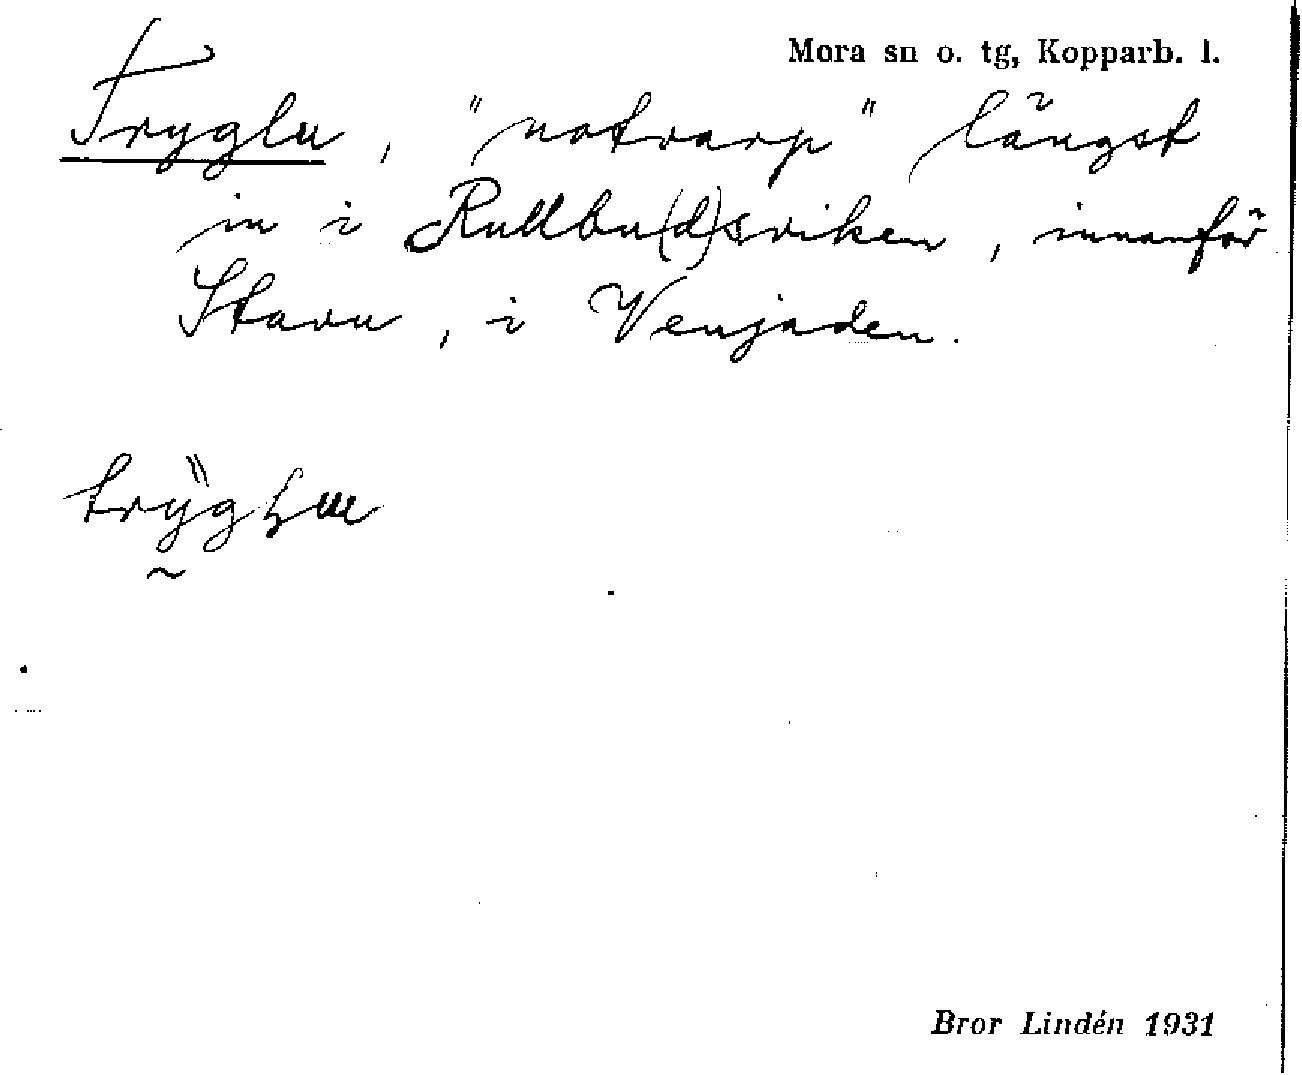 Mora sn o. tg, Kopparb. l.
Tryglu, "notvarp" längst
in i Rullbu(d)sviken, innanför
Stavu, i Venjaden.
Bror Lindén 1931